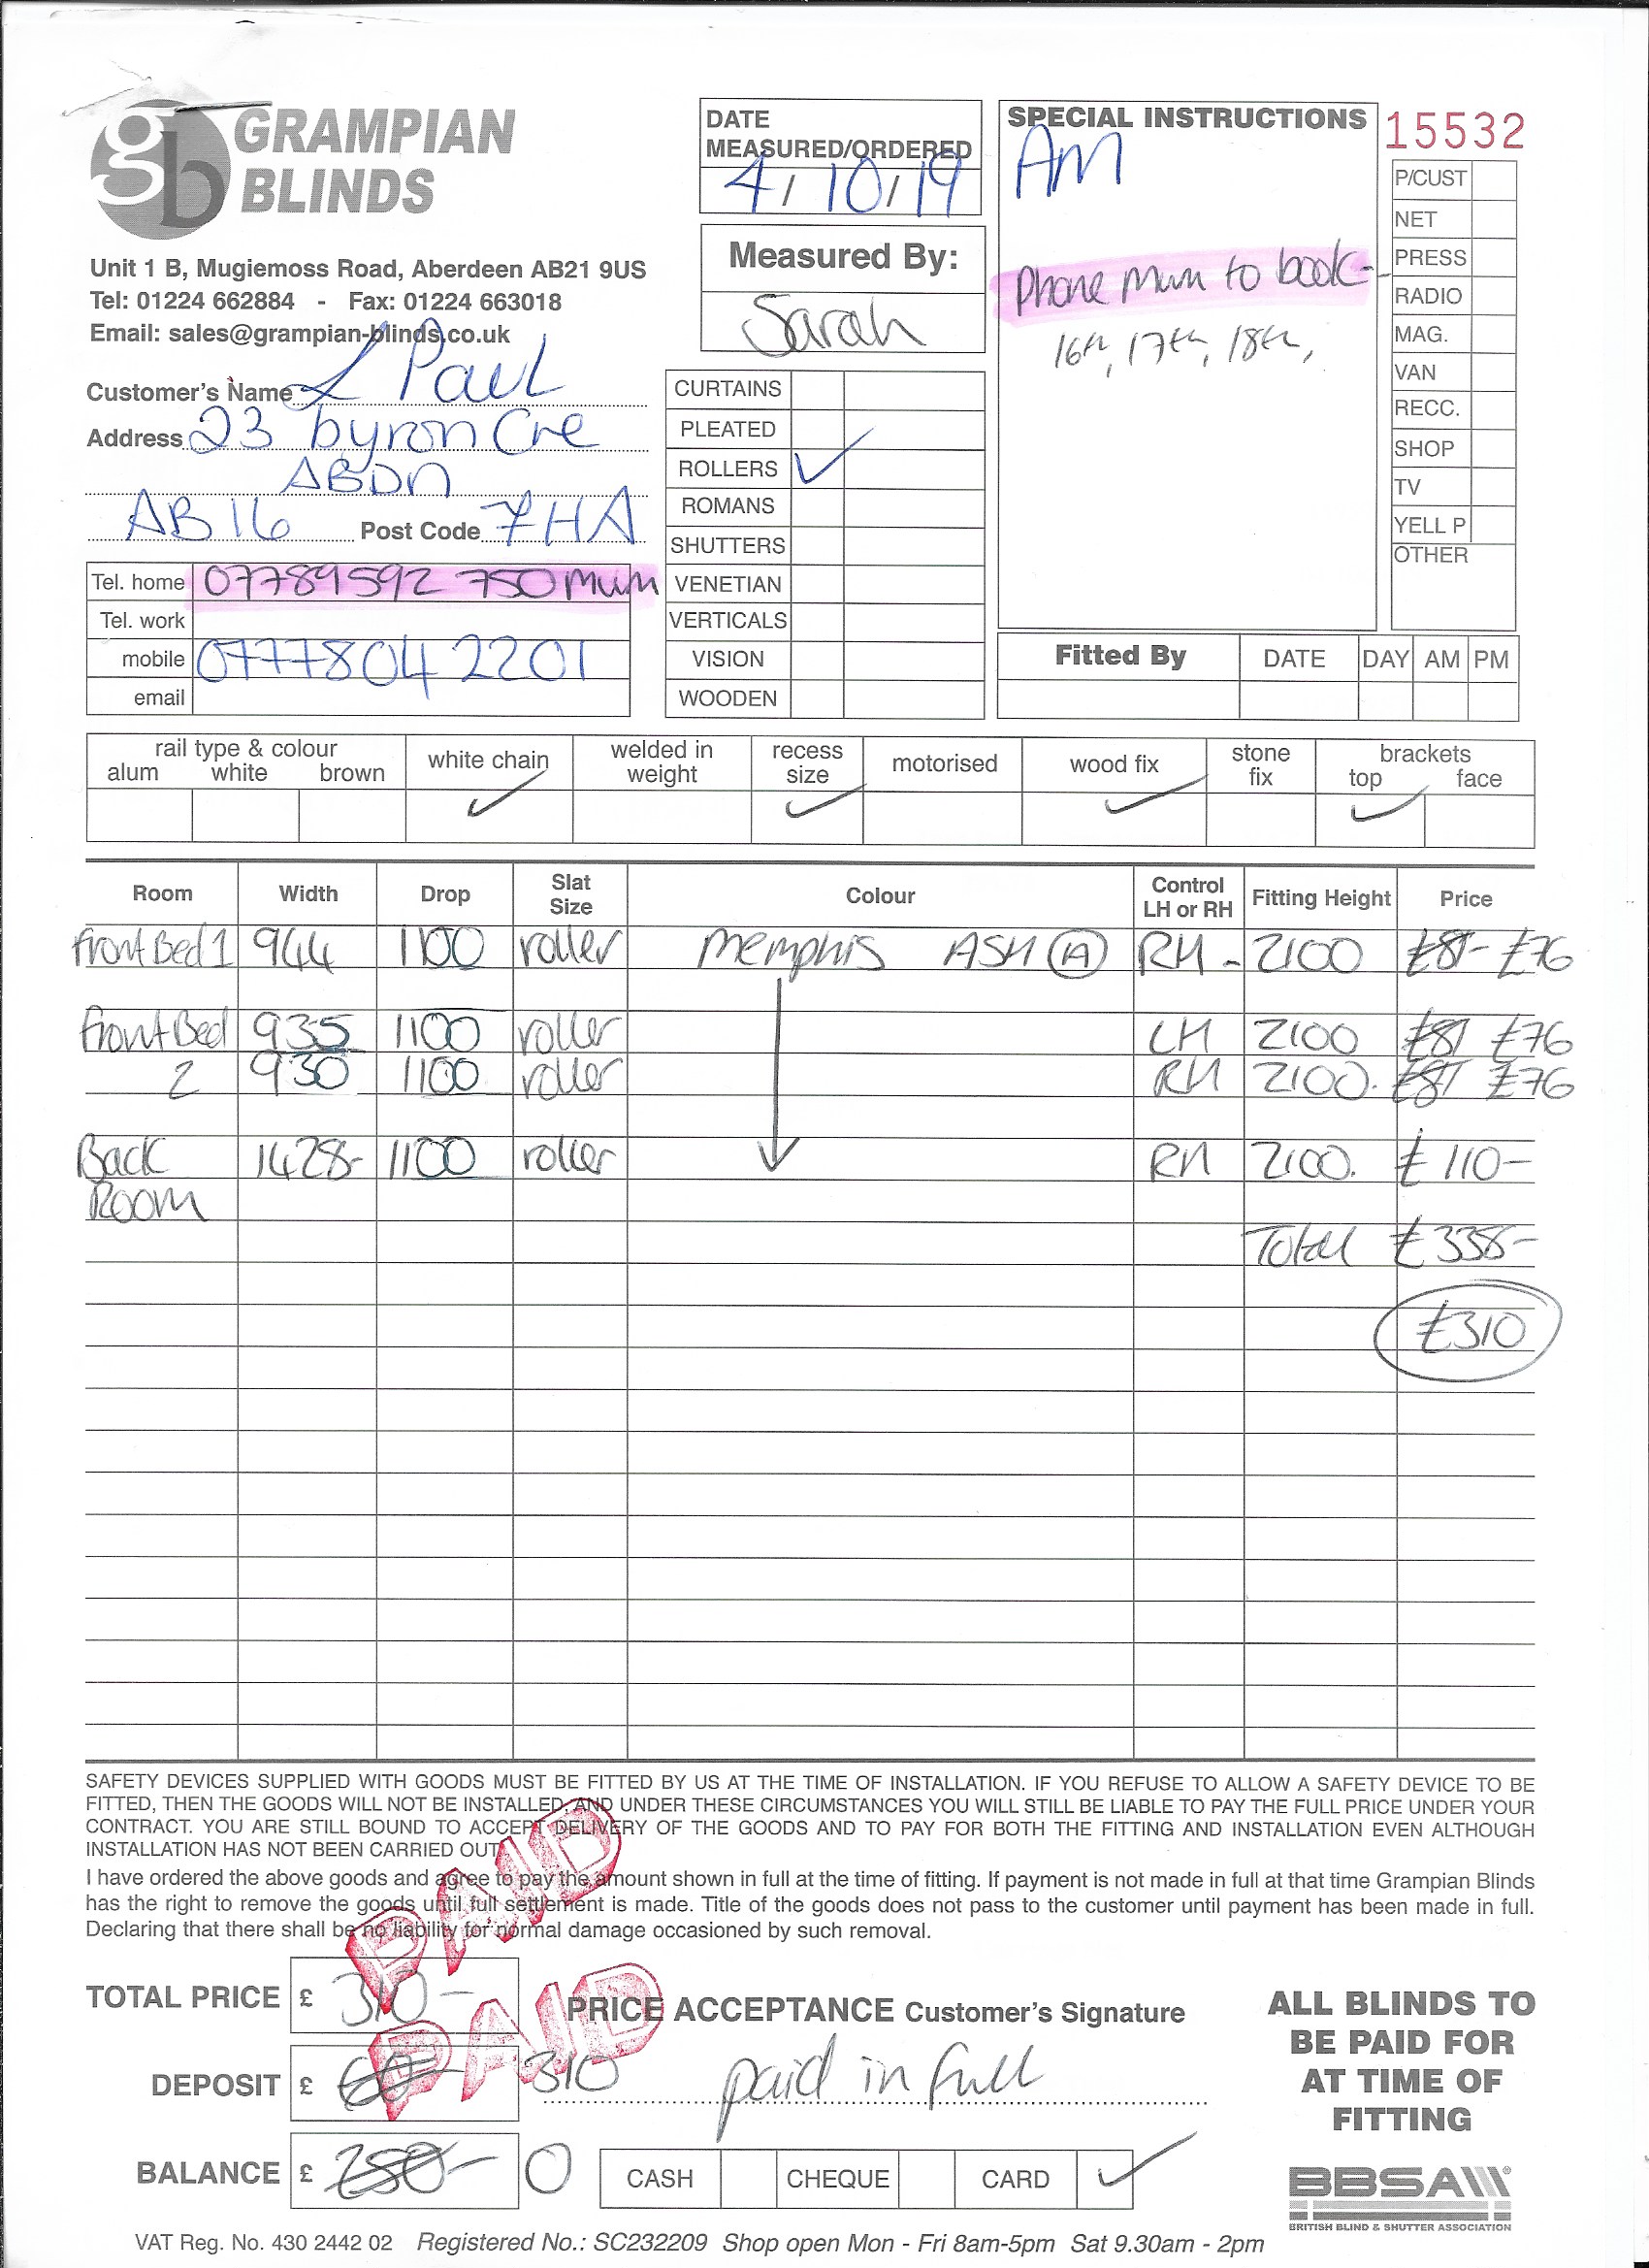 GRAMPIAN
BLINDS
Unit 1 B, Mugiemoss Road, Aberdeen AB21 9US
Tel: 01224 662884 - Fax: 01224 663018
Email: sales@grampian-blinds.co.uk
Customer's Name L Paul
Address 23 byron Cre
ABDN
AB16 Post Code 7HA
Tel. home 07789592 750 mum
Tel. work
mobile 07778042201
email
DATE
MEASURED/ORDERED
4/10/19
Measured By:
Sarah
CURTAINS
PLEATED
ROLLERS ✓
ROMANS
SHUTTERS
VENETIAN
VERTICALS
VISION
WOODEN
SPECIAL INSTRUCTIONS
AM
Phone Mum to book-
16th, 17th, 18th,
15532
P/CUST
NET
PRESS
RADIO
MAG.
VAN
RECC.
SHOP
TV
YELL P
OTHER
Fitted By DATE DAY AM PM
rail type & colour
alum white brown
white chain ✓
welded in weight
recess size ✓
motorised
wood fix ✓
stone fix
brackets
top ✓ face
Room Width Drop Slat Size Colour Control LH or RH Fitting Height Price
Front Bed 1 944 1100 roller Memphis ASH (A) RH - 2100 £81- £76
Front Bed 935 1100 roller LH 2100 £81 £76
2 930 1100 roller RH 2100. £81 £76
Back 1428- 1100 roller RH 2100. £110-
Room
Total £338-
£310
SAFETY DEVICES SUPPLIED WITH GOODS MUST BE FITTED BY US AT THE TIME OF INSTALLATION. IF YOU REFUSE TO ALLOW A SAFETY DEVICE TO BE
FITTED, THEN THE GOODS WILL NOT BE INSTALLED, AND UNDER THESE CIRCUMSTANCES YOU WILL STILL BE LIABLE TO PAY THE FULL PRICE UNDER YOUR
CONTRACT. YOU ARE STILL BOUND TO ACCEPT DELIVERY OF THE GOODS AND TO PAY FOR BOTH THE FITTING AND INSTALLATION EVEN ALTHOUGH
INSTALLATION HAS NOT BEEN CARRIED OUT.
I have ordered the above goods and agree to pay the amount shown in full at the time of fitting. If payment is not made in full at that time Grampian Blinds
has the right to remove the goods until full settlement is made. Title of the goods does not pass to the customer until payment has been made in full.
Declaring that there shall be no liability for normal damage occasioned by such removal.
PAID
PAID
TOTAL PRICE £ 310-
PRICE ACCEPTANCE Customer's Signature
DEPOSIT £ 60 310 paid in full
BALANCE £ 250- 0
CASH CHEQUE CARD ✓
ALL BLINDS TO
BE PAID FOR
AT TIME OF
FITTING
BBSA
BRITISH BLIND & SHUTTER ASSOCIATION
VAT Reg. No. 430 2442 02 Registered No.: SC232209 Shop open Mon - Fri 8am-5pm Sat 9.30am - 2pm